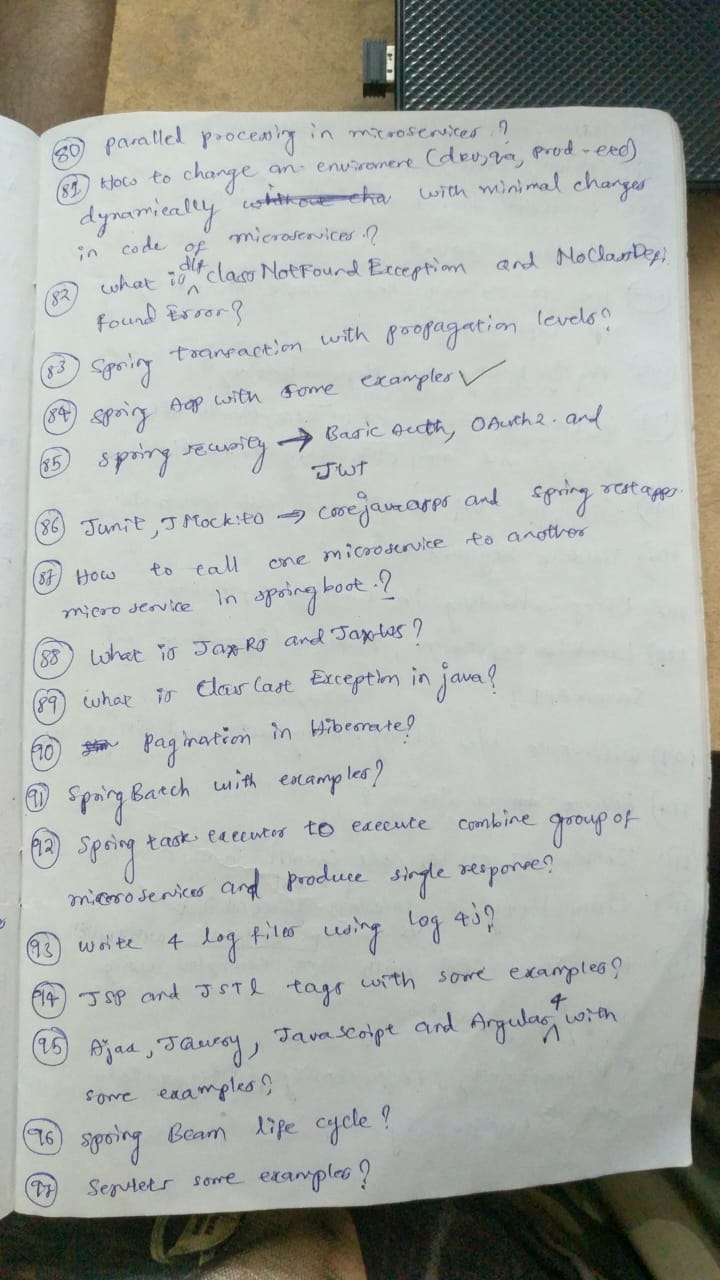 80 parallel processing in microservices.?
81 How to change an enviromere (dev, qa, prod-etc)
dynamically with minimal changes
in code of microservices.?
82 what is diff ClassNotFound Exception and NoClassDefi
Found Error?
83 Spring transaction with propagation levels?
84 Spring Aop with some examples ✓
85 Spring security → Basic Auth, OAuth2. and
JWT
86 Junit, JMockito → core java apps and Spring rest apps.
87 How to call one microservice to another
micro service in springboot.?
88 What is Jax-Rs and Jax-Ws?
89 what is Class Cast Exception in java?
90 Pagination in Hibernate?
91 Spring Batch with examples?
92 Spring task executor to execute combine group of
microservices and produce single response?
93 write 4 log files using log 4j?
94 JSP and JSTL tags with some examples?
95 Ajax, Jquery, Javascript and Angular 4 with
some examples?
96 Spring Bean life cycle?
97 Servlets some examples?